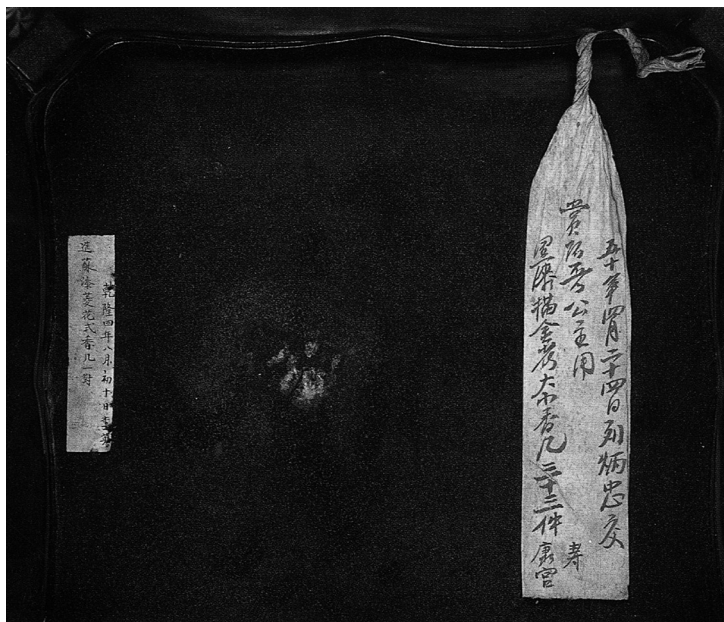 五十年四月二十四日刘炳忠交
賞公主用 寿
黑漆描金彩大小香几二十三件 康宮
乾隆四年八月初十日李英
進蘇漆菱花式香几一對